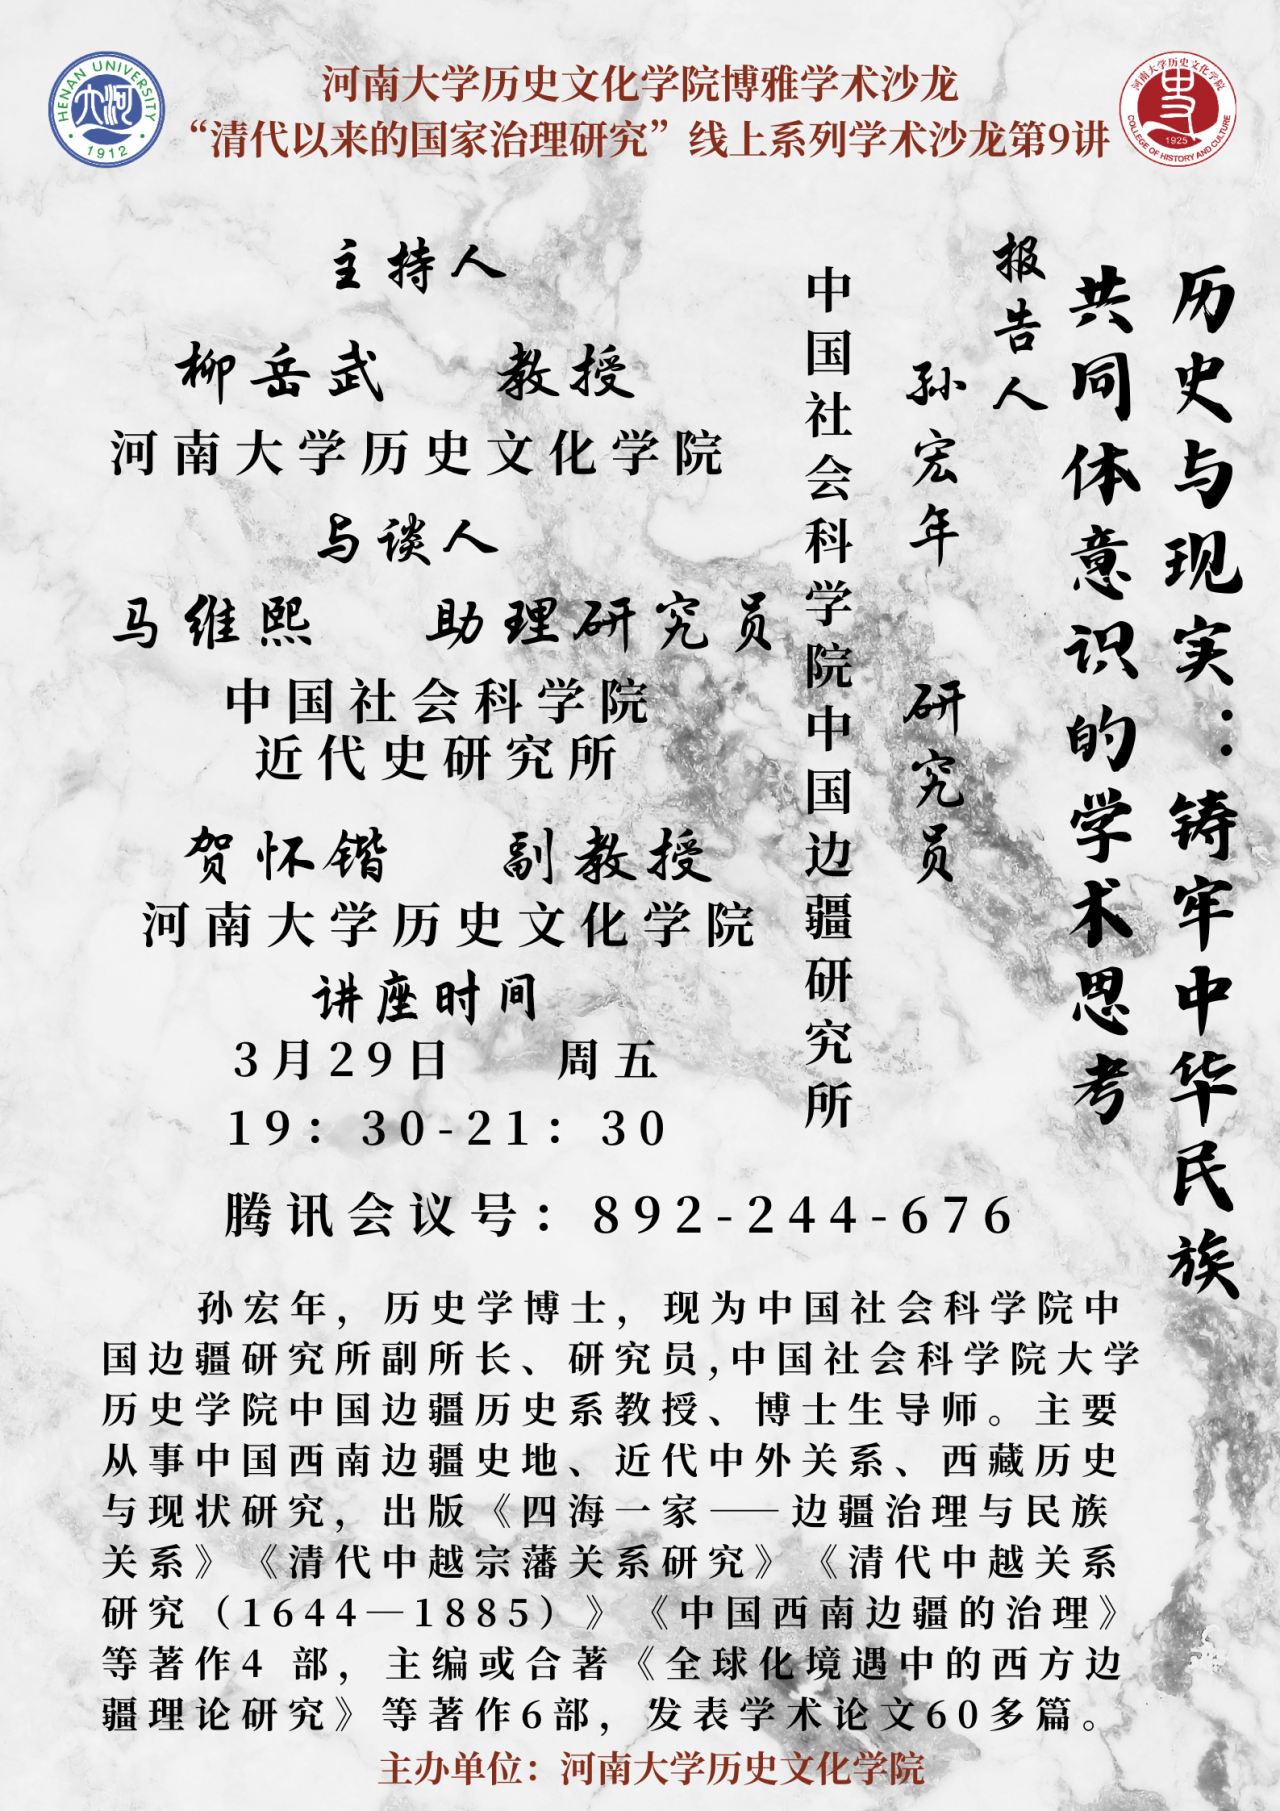 河南大学历史文化学院博雅学术沙龙
“清代以来的国家治理研究”线上系列学术沙龙第9讲
HENAN UNIVERSITY
1912
河南大学历史文化学院
1925
COLLEGE OF HISTORY AND CULTURE
历史与现实：铸牢中华民族
共同体意识的学术思考
报告人
孙宏年 研究员
中国社会科学院中国边疆研究所
主持人
柳岳武 教授
河南大学历史文化学院
与谈人
马维熙 助理研究员
中国社会科学院
近代史研究所
贺怀锴 副教授
河南大学历史文化学院
讲座时间
3月29日 周五
19：30-21：30
腾讯会议号：892-244-676
孙宏年，历史学博士，现为中国社会科学院中
国边疆研究所副所长、研究员,中国社会科学院大学
历史学院中国边疆历史系教授、博士生导师。主要
从事中国西南边疆史地、近代中外关系、西藏历史
与现状研究，出版《四海一家——边疆治理与民族
关系》《清代中越宗藩关系研究》《清代中越关系
研究（1644—1885）》《中国西南边疆的治理》
等著作4 部，主编或合著《全球化境遇中的西方边
疆理论研究》等著作6部，发表学术论文60多篇。
主办单位：河南大学历史文化学院